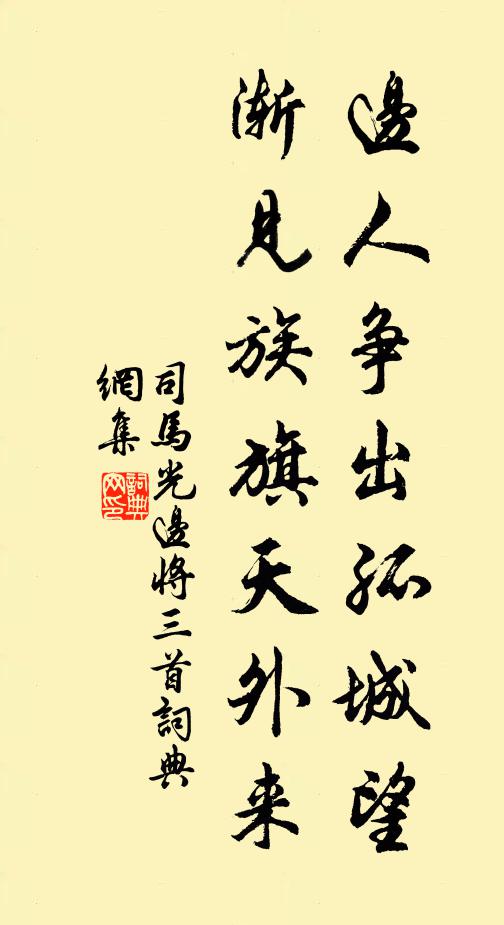 邊人爭出孤城望
漸見族旗天外来
司馬光邊將三首詞典
網集
詞典
网印